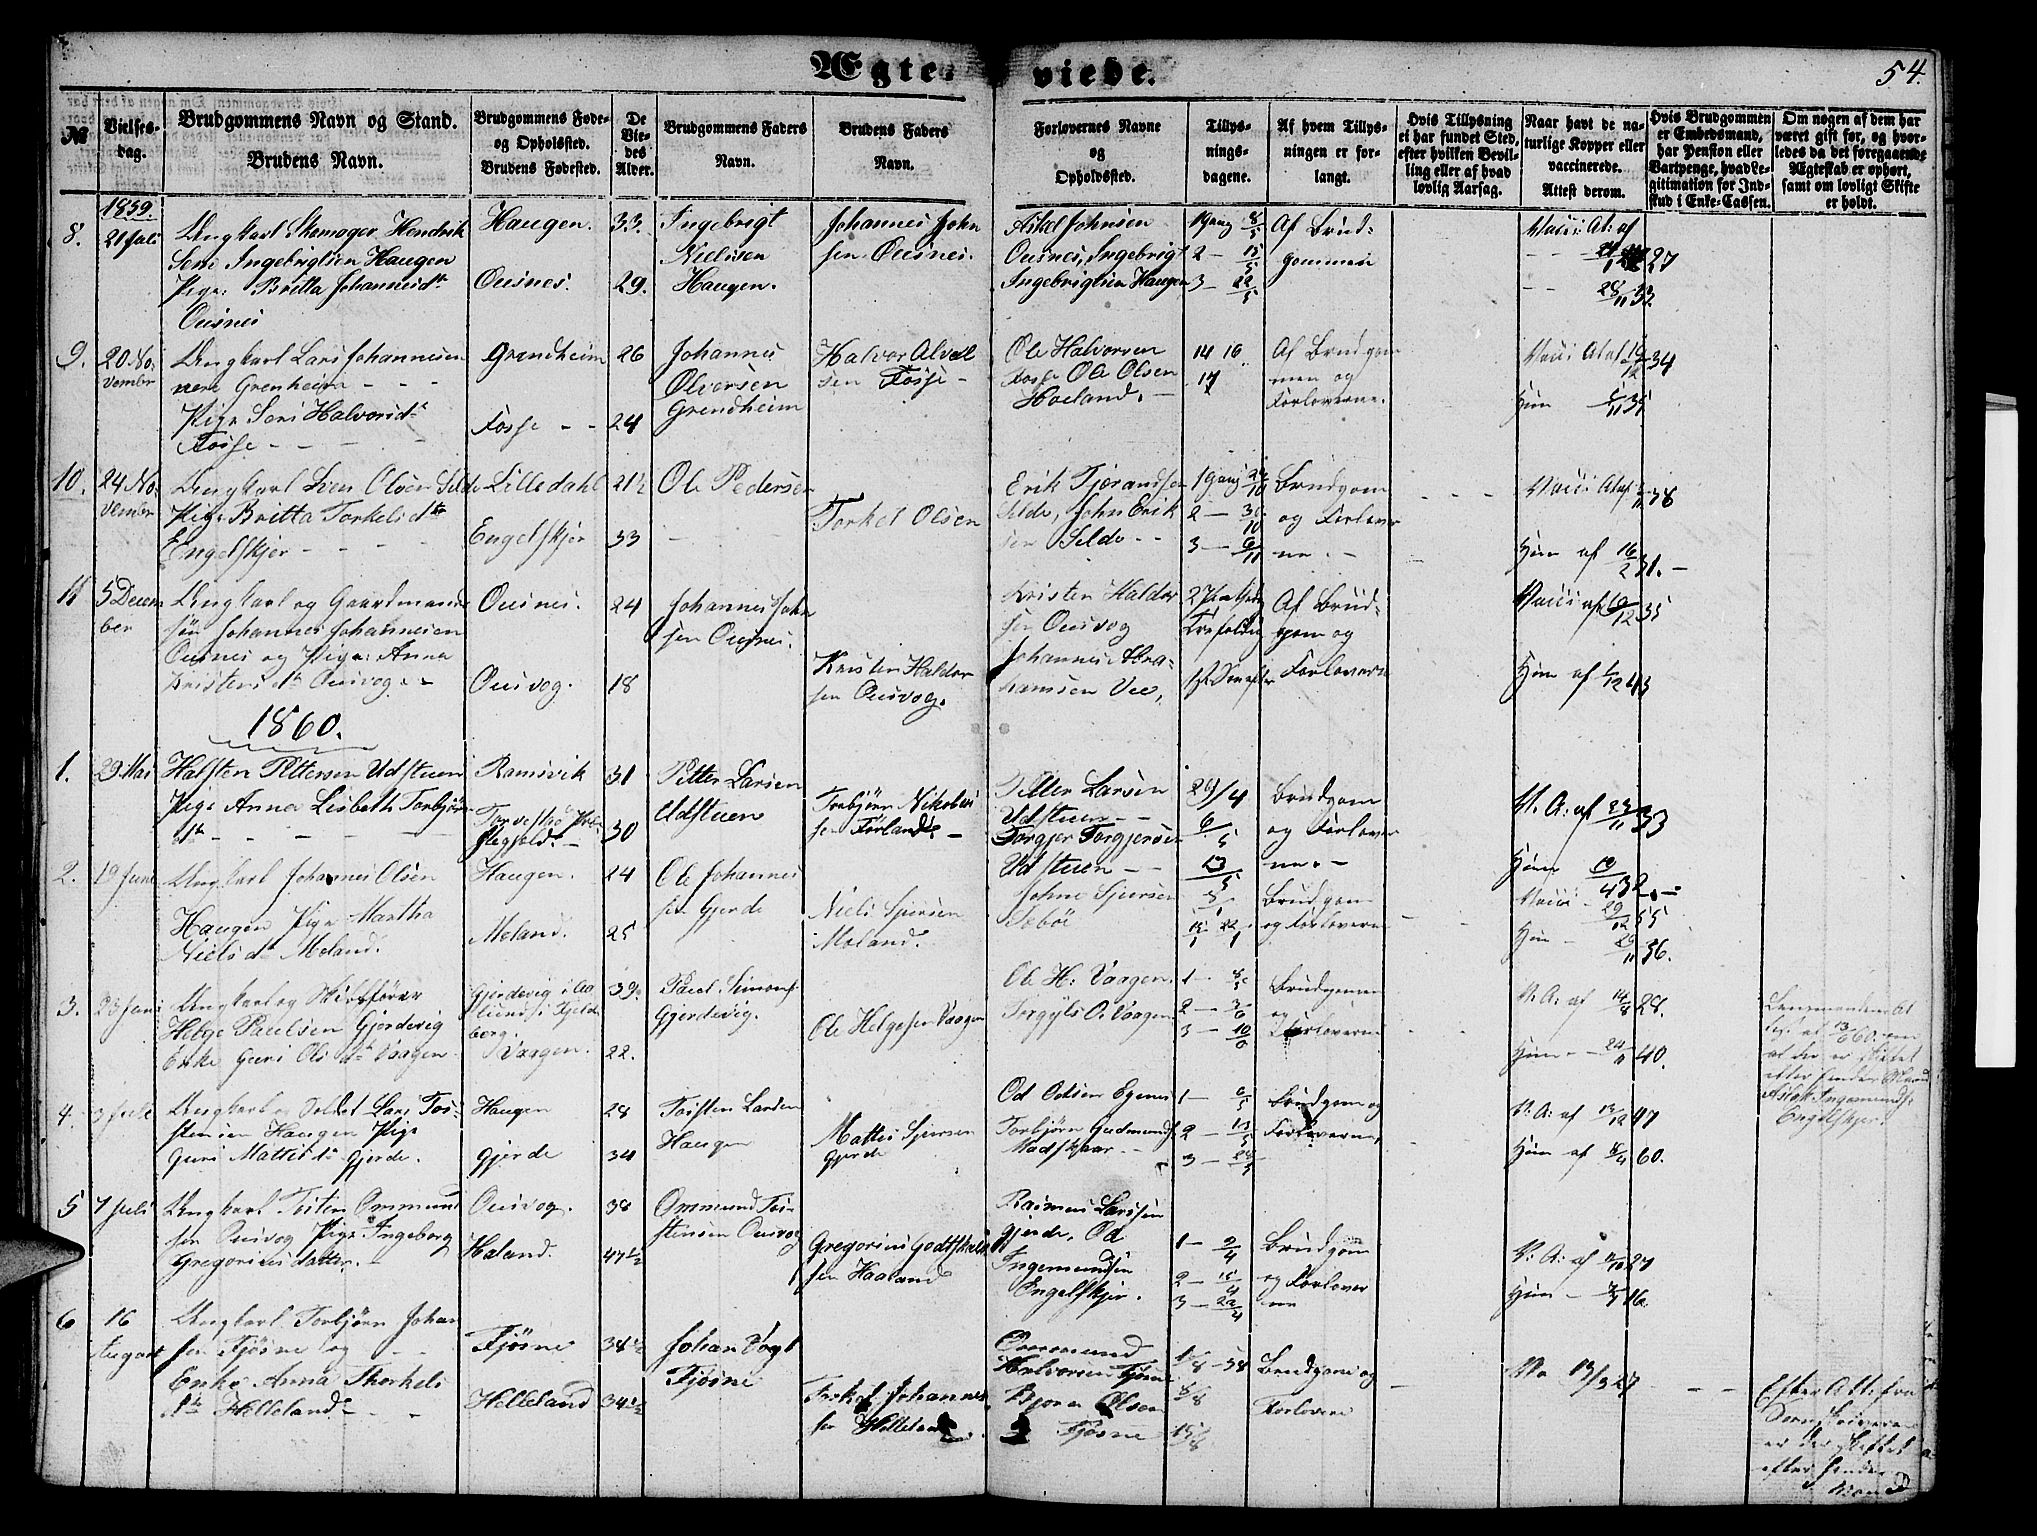 Ægte-viede.
54.
№
Vielses-dag.
Brudgommens Navn og Stand.
Brudens Navn.
Brudgommens Føde-
og Opholdssted.
Brudens Fødested.
De
Vie-
des
Alder.
Brudgommens Faders
Navn.
Brudens Faders
Navn.
Forlovernes Navne
og
Opholdssted.
Tillys-
nings-
dagene.
Af hvem Tillys-
ningen er for-
langt.
Hvis Tillysning
ei har fundet Sted,
efter hvilken Bevil-
ling eller af hvad
lovlig Aarsag.
Naar havt de na-
turlige Kopper eller
vaccinerede.
Attest derom.
Hvis Brudgommen
er Embedsmand,
har Pension eller
Vartpenge, hvad Le-
gitimation for Ind-
skud i Enke-Cassen.
Om nogen af dem har
været gift før, og hvor-
ledes da det foregaaende
Ægteskab er ophørt,
samt om lovligt Skifte
er holdt.
1859.
8. 21 Juli
Ungkarl Skomager Hendrik
Ingebrigtsen Haugen
Pige: Britta Johannesdtr
Ousnes
Haugen. 33.
Ousnes. 29.
Ingebrigt
Nielssen
Haugen.
Johannes John
sen Ousnes.
Askel Johnsen
Ousnes, Ingebrigt
Ingebrigtsen Haugen
1 gang 8/5
2 - 15/5
3 - 22/5
Af Brud-
gommen
Vacci At: af
27
28/11 32
9. 20 No-
vember
Ungkarl Lars Johannesen
Grenheim
Pige Seri Halvorsdtr
Fosse
Grendheim 26
Fosse 24
Johannes
Olversen
Grendheim
Halvor
sen Fosse
Ole Halvorsen
Fosse Ole Olsen
Hoeland.
14 16
17
Af Brudgom
men og
Forloverne.
Vacci At af 34
Hun 35
10. 24 No-
vember
Ungkarl Sven Olsen Selde
Pige Britta Torkelsdtr
Engelskjer
Lilledahl 21½
Engelskjer 33
Ole Pedersen
Torkel Olsen
Erik Tjorandsen
Selde, John Erik
sen Selde
1 gang 24/10
2 - 30/10
3 - 6/11
Brudgom
og Forlover
ne.
Vacci At af 38
Hun af 16/2 31.
11 5 Decem
ber
Ungkarl og Gaardmands
søn Johannes Johannesen
Ousnes og Pige: Anna
Kristensdtr Ousvog
Ousnes. 24
Ousvog. 18
Johannes John
sen Ousnes.
Kristen Haldor
sen Ousvog.
Kristen Haldor
sen Ousvog
Johannes Abra-
hamsen Vee,
Af Brud-
gom og
Forloverne
Vacci af 10/12 35
Hun af 1/12 43
1860.
1. 29 Mai
Halsten Pettersen Udstuen
Pige Anna Lisbeth Torbjørns
dtr
Ramsvik 31
30
Petter Larsen
Udstuen
Torbjørn Nikolai
sen Førland
Petter Larsen
Udstuen
Torgjer Torgjersen
Udstuen
29/4
6/5
13/5
Brudgom
og Forlover
ne.
V. A: af 33
Hun 19/4 32
2. 19 Juni
Ungkarl Johannes Olsen
Haugen Pige Martha
Nielsdtr Meland.
Haugen. 24
Meland. 25
Ole Johannes
sen Gjerde
Niels Sjursen
Meland.
Johne Sjursen
Tebøe
Brudgom
og Forloverne
Vacci 29/12 55
Hun 29/11 36.
3. 23 Juni
Ungkarl og Skibsfører
Helge Paulsen Gjerdevig
Enke Guri Olsdtr Vaagen
Gjerdevig i
39.
Vaagen. 22.
Paul Simons
Gjerdevig.
Ole Helgesen Vaagen
Ole H: Vaagen
Torgyls O. Vaagen
1 -
2 -
3 - 10/6
Brudgommen
og
Forloverne
V: A: af 14/8 28.
Hun - 24 40.
13/6 60. om
at der er skiftet
efter hendes Mand
Aslak Ingemunds.
Engelskjer.
4. 3 Juli
Ungkarl og Soldat Lars Tos-
tensen Haugen Pige
Guri Mattesdtr Gjerde.
Haugen 28
Gjerde 34
Tosten Larsen
Haugen
Mattis Sjursen
Gjerde
Od Odsen Egenes
Torbjørn Gudmunds.
Madskaar.
1 - 6/5
2 - 13/5
3 - 28/5
Brudgom og
Forloverne,
V: A: af 47
Hun af 8/4 60.
5 7 Juli
Ungkarl Tosten Ommund
sen Ousvog Pige Ingeborg
Gregoriusdatter.
Ousvog. 38
Haland. 47½
Ommund Tos-
stensen Ousvog
Gregorius Godtskalk
sen Haaland
Rasmus Larssen
Gjerde, Od
Ingemundsen
Engelskjer.
1 - 2/4
2 - 15/4
3 - 22/4
Brudgom
og Forlover
ne
V: A: af 27
Hun - 16.
6 16
August
Ungkarl Torbjørn Johan
sen Fjøsne og
Enke Anna Thorkels
dtr Helleland
Fjøsne 34½
Helleland 34½
Johan Vogt
Fjøsne
Torkel Johannes
sen Helleland.
Ommund
Halvorsen Fjøsne
Bjørn Olsen
Fjøsne
15/8
Brudgom og
Forlovere
Va 13/3 27
Efter Attest fra
Sorenskriveren
er der skiftet
efter hendes
Mand